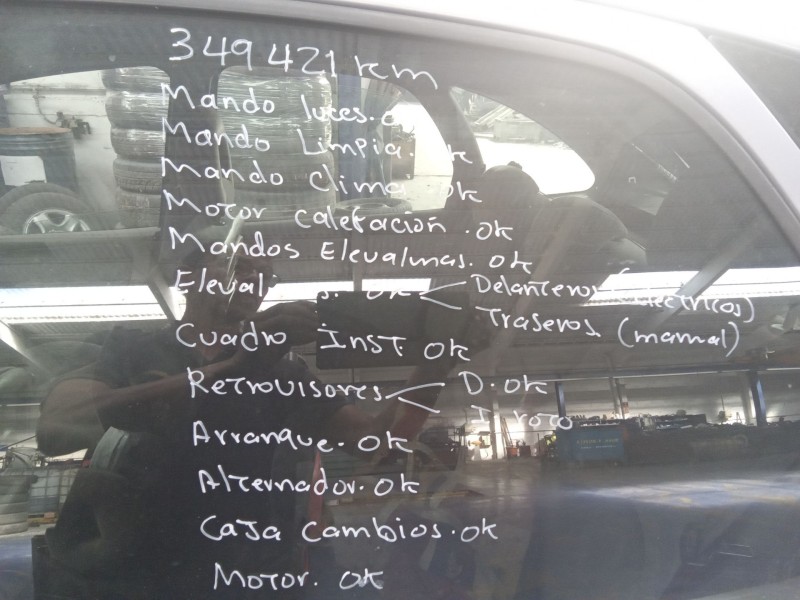 349421 km
Mando luces.
Mando Limpia. ok
Mando Clima ok
Motor calefación . ok
Mandos Elevalunas. ok
ok Delanteros (Electricos)
Traseros (manual)
Cuadro INST. ok
Retrovisores D. ok
I roto
Arranque. ok
Alternador. ok
Caja Cambios. ok
Motor. ok